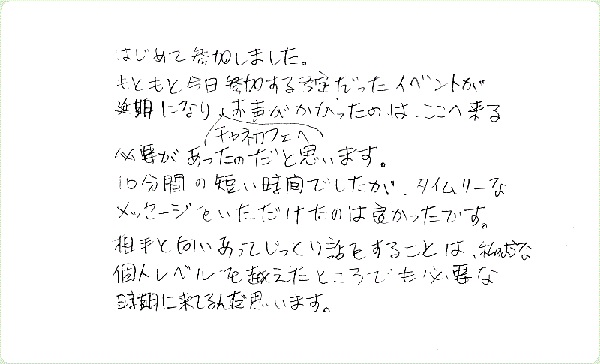 はじめて参加しました。
もともと今日参加する予定だったイベントが
延期になり、お声がかかったのは、ここへ来る
チャネカフェへ
必要があったのだと思います。
10分間の短い時間でしたが、タイムリーな
メッセージをいただけたのは良かったです。
相手と向いあってじっくり話をすることは、
個人レベルを越えたところでも必要な
時期に来てるんだと思います。